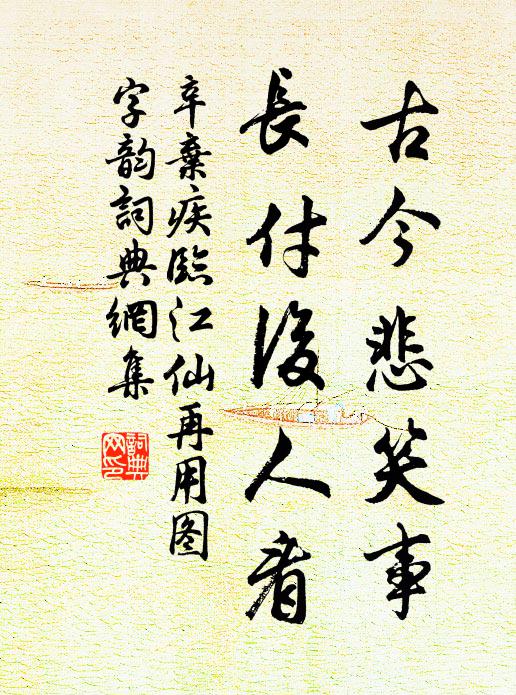 古今悲笑事
長付後人看
辛棄疾臨江仙再用图
字韵詞典網集
詞典网印